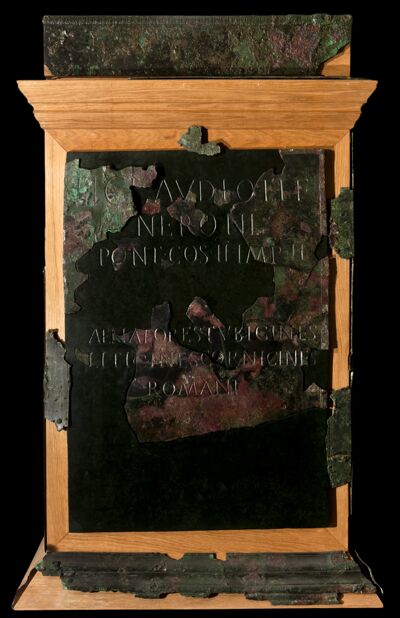 TI CLAVDIO TI F
NERONI
PONT COS II IMP II
AENATORES TVBICINES
LITICINES CORNICINES
ROMANI